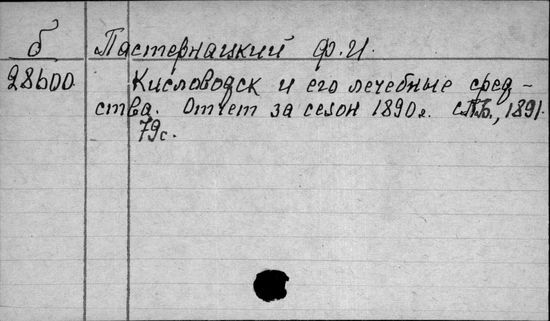 б Пастернацкий Ф.И.
28600 Кисловодск и его лечебные сред-
ства. Отчет за сезон 1890г. СПБ., 1891.
79с.